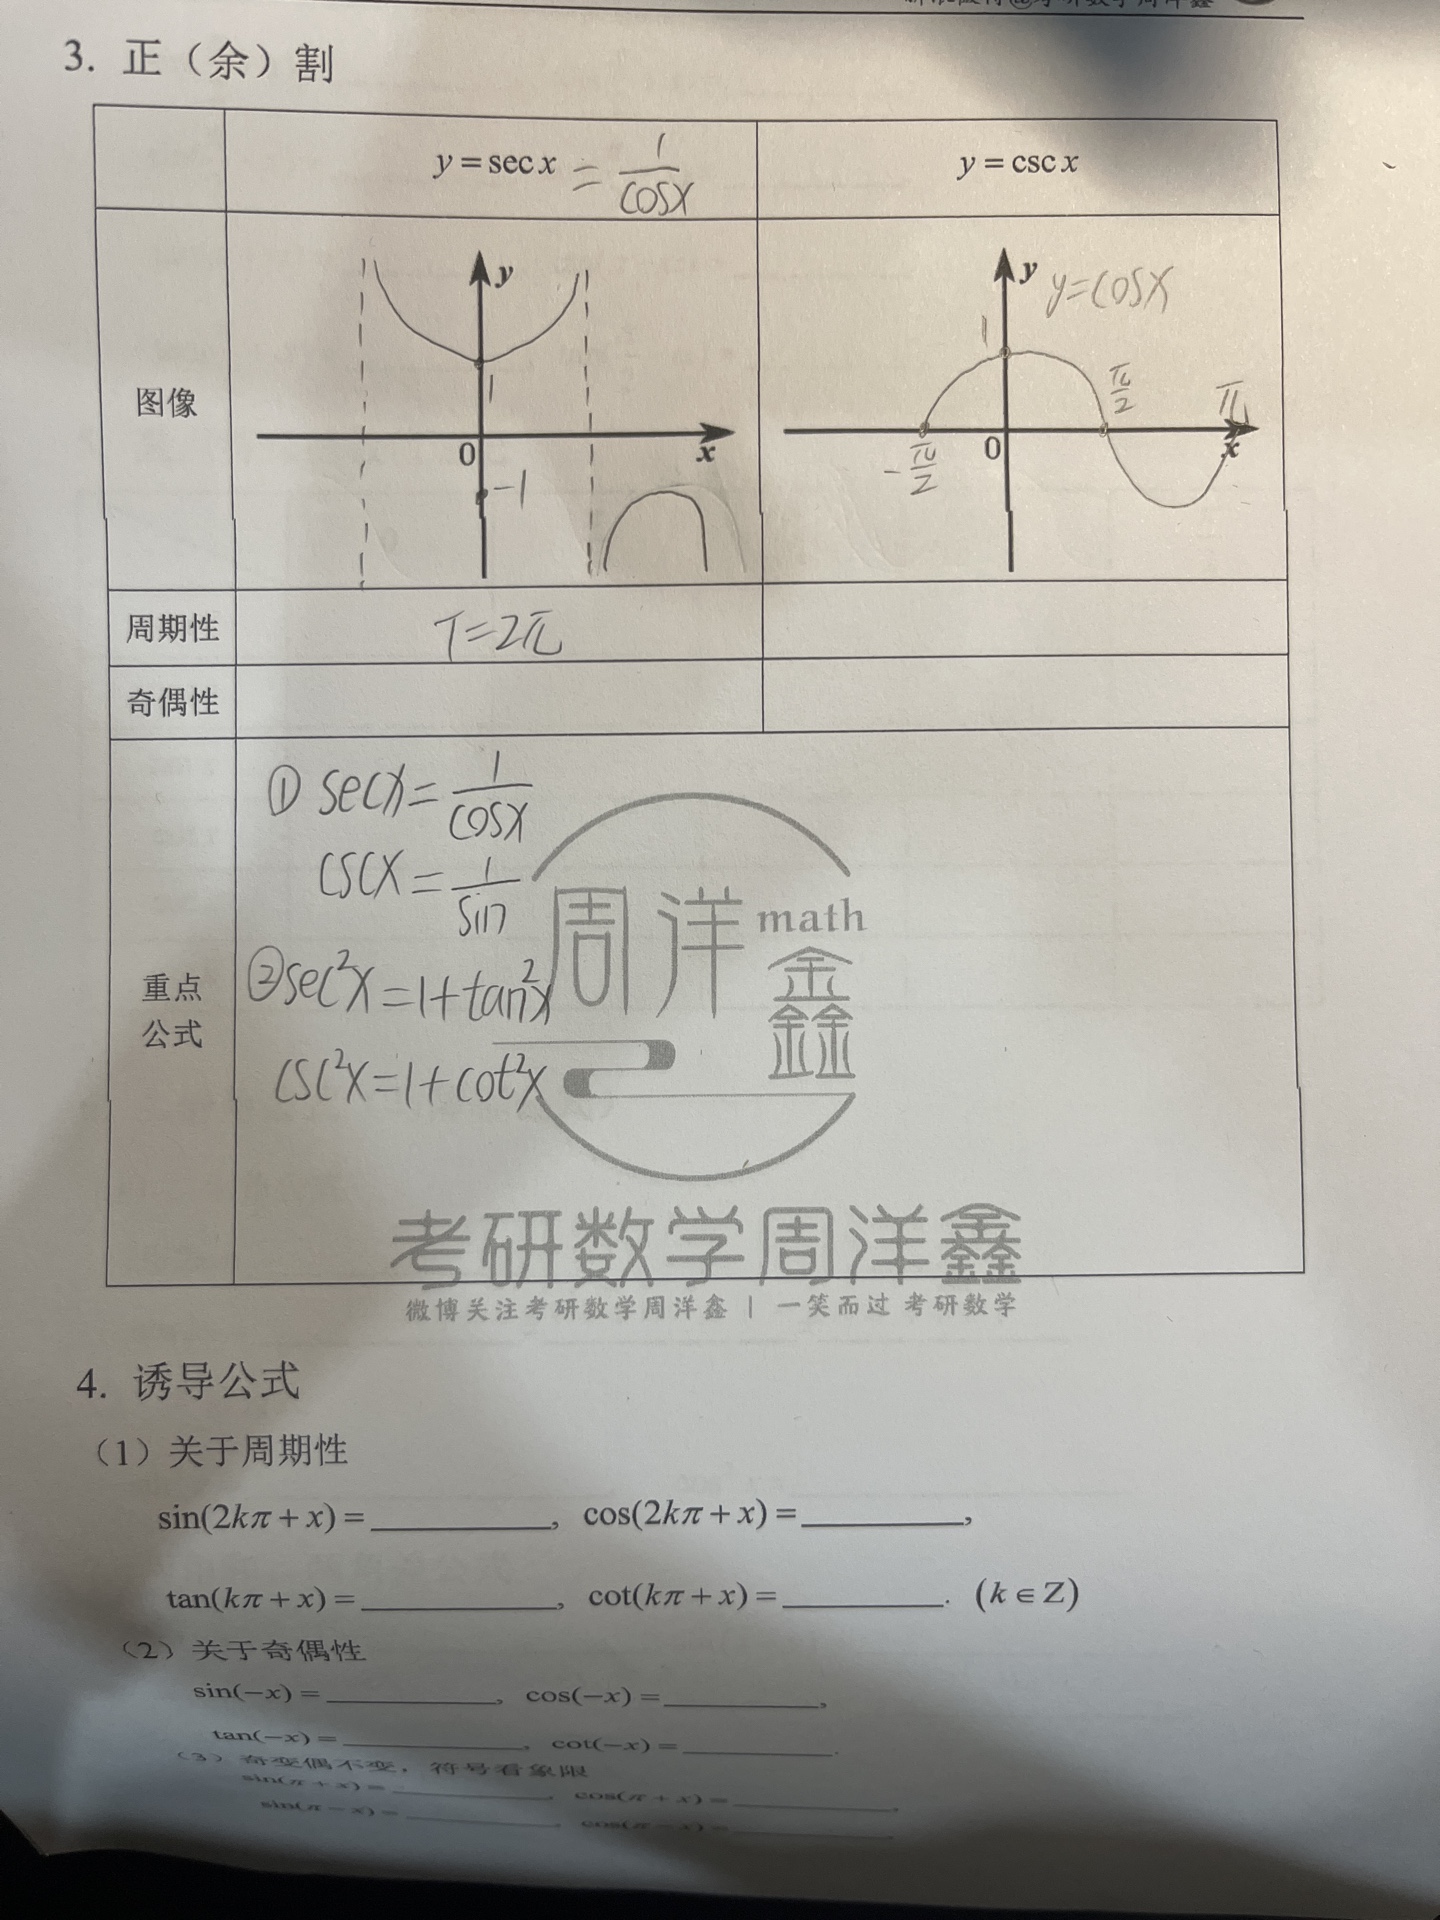 3. 正（余）割
y = sec x = 1/cosx
y = csc x
图像
y
1
0
x
-1
y
y=cosx
1
π/2
π
0
x
-π/2
周期性
T=2π
奇偶性
重点
公式
① secx = 1/cosx
cscx = 1/sin
② sec²x = 1+tan²x
csc²x = 1+cot²x
周洋鑫
math
考研数学周洋鑫
微博关注考研数学周洋鑫 | 一笑而过 考研数学
4. 诱导公式
（1）关于周期性
sin(2kπ + x) = ________, cos(2kπ + x) = ________,
tan(kπ + x) = ________, cot(kπ + x) = ________. (k ∈ Z)
（2）关于奇偶性
sin(−x) = ________, cos(−x) = ________,
tan(−x) = ________, cot(−x) = ________.
（3）奇变偶不变，符号看象限
sin(π + x) = ________, cos(π + x) = ________,
sin(π − x) = ________, cos(π − x) = ________,